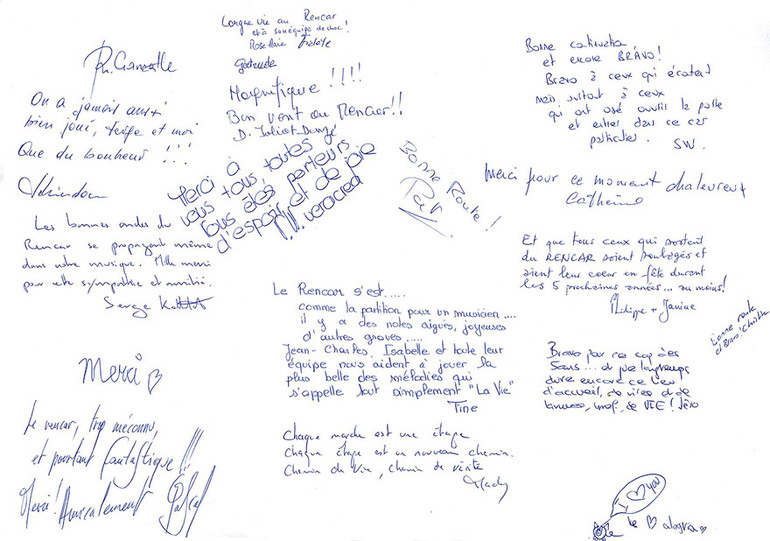 Longue vie au Rencar
et à son équipe de choc!
Rose Marie
Magnifique !!!!
Bon vent au Rencar!!
On a jamais aussi
bien joué,              et moi
Que du bonheur !!!
Merci à
vous tous, toutes
Vous êtes porteurs
d'espoir et de joie
Bonne Route!
Pat
Les bonnes ondes du
Rencar se propagent même
dans notre musique. Mille merci
pour cette sympathie et amitié.
Serge
Merci ♡
Le rencar, trop méconnu,
et pourtant fantastique !!!
Merci! Amicalement Pascal
Le Rencar s'est.....
comme la partition pour un musicien....
il y a des notes aiguës, joyeuses
d'autres graves.....
Jean-Charles, Isabelle et toute leur
équipe nous aident à jouer la
plus belle des mélodies qui
s'appelle tout simplement "La Vie"
Tine
Chaque marche est une étape
Chaque étape est un nouveau chemin.
Chemin de Vie, chemin de vérité
Mady
Bonne continuation
et encore BRAVO!
Bravo à ceux qui écoutent
mais surtout à ceux
qui ont osé ouvrir la porte
et entrer dans ce car
particulier.
SW.
Merci pour ce moment chaleureux
Catherine
Et que tous ceux qui sortent
du RENCAR soient soulagés et
aient leur coeur en fête durant
les 5 prochaines années... au moins!
Philippe + Janine
Bonne route
et Bravo. Christine
Bravo pour ce car des
Sans... et que longtemps
dure encore ce lieu
d'accueil, de rires et de
larmes, bref, de VIE!
I ♡ you
le ♡